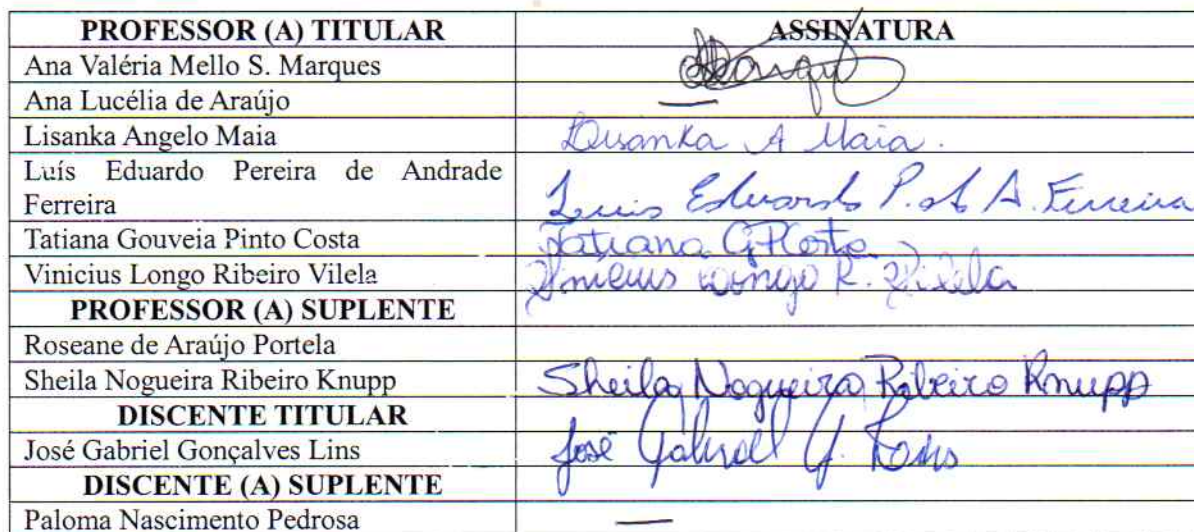 PROFESSOR (A) TITULAR ASSINATURA
Ana Valéria Mello S. Marques
Ana Lucélia de Araújo —
Lisanka Angelo Maia Lisanka A Maia.
Luís Eduardo Pereira de Andrade
Ferreira Luis Eduardo P. de A. Ferreira
Tatiana Gouveia Pinto Costa Tatiana G P Costa
Vinicius Longo Ribeiro Vilela Vinicius Longo R. Vilela
PROFESSOR (A) SUPLENTE
Roseane de Araújo Portela
Sheila Nogueira Ribeiro Knupp Sheila Nogueira Ribeiro Knupp
DISCENTE TITULAR
José Gabriel Gonçalves Lins José Gabriel G. Lins
DISCENTE (A) SUPLENTE
Paloma Nascimento Pedrosa —